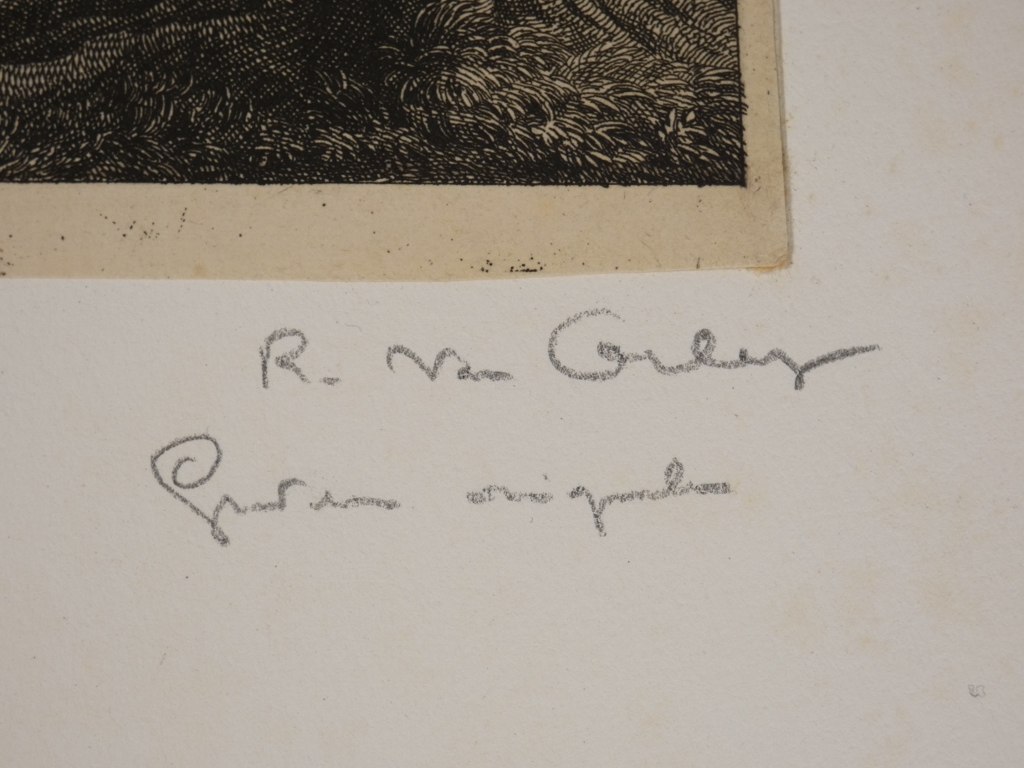 R. Van Corley
Gravure originale